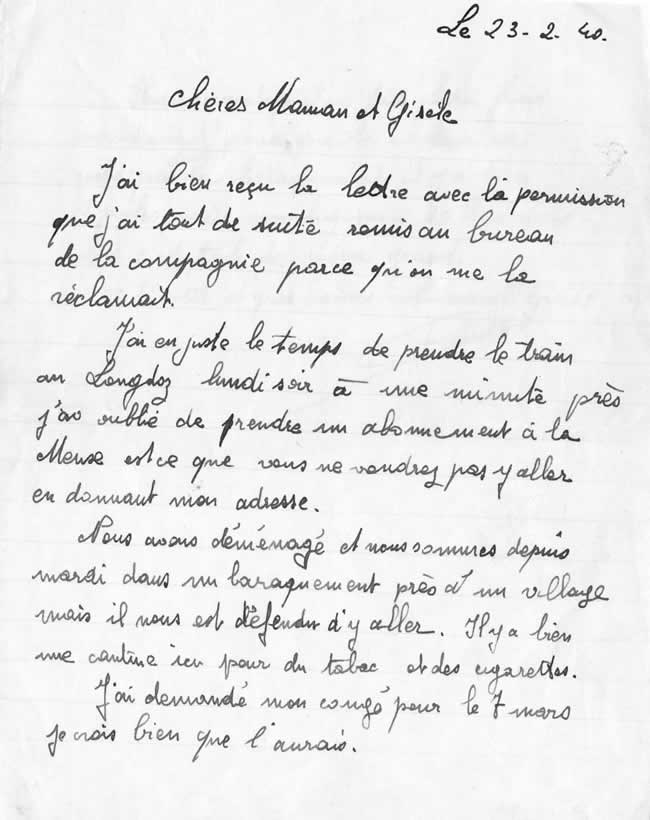 Le 23-2-40.
Chères Maman et Gisèle
J'ai bien reçu la lettre avec la permission
que j'ai tout de suite remis au bureau
de la compagnie parce qu'on me la
réclamait.
J'ai eu juste le temps de prendre le train
au Longdoz lundi soir à une minute près
j'ai oublié de prendre un abonnement à la
Meuse est ce que vous ne voudrez pas y aller
en donnant mon adresse.
Nous avons déménagé et nous sommes depuis
mardi dans un baraquement près d'un village
mais il nous est défendu d'y aller. Il y a bien
une cantine ici pour du tabac et des cigarettes.
J'ai demandé mon congé pour le 7 mars
je crois bien que l'aurais.